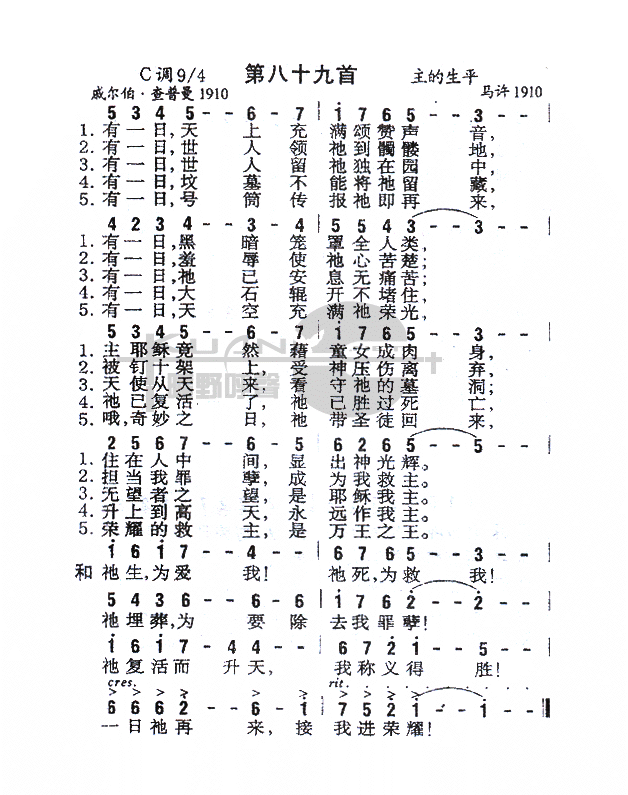 C调9/4 第八十九首 主的生平
威尔伯·查普曼 1910 马许 1910
5 3 4 5 - - 6 - 7 | 1̇ 7 6 5 - - 3 - -
1. 有一日,天上充满颂赞声音,
2. 有一日,世人领祂到髑髅地,
3. 有一日,世人留祂独在园中,
4. 有一日,坟墓不能将祂留藏,
5. 有一日,号筒传报祂即再来,
4 2 3 4 - - 3 - 4 | 5 5 4 3 - - 3 - -
1. 有一日,黑暗笼罩全人类,
2. 有一日,羞辱使祂心苦楚;
3. 有一日,祂已安息无痛苦;
4. 有一日,大石辊开不堵住,
5. 有一日,天空充满祂荣光,
5 3 4 5 - - 6 - 7 | 1̇ 7 6 5 - - 3 - -
1. 主耶稣竟然藉童女成肉身,
2. 被钉十架上,受神伤离弃,
3. 天使从天来,看守祂墓洞;
4. 祂已复活了,祂已胜过死亡,
5. 哦,奇妙之日,祂带圣徒回来,
2 5 6 7 - - 6 - 5 | 6 2̇ 6 5 - - 5 - -
1. 住在人中间,显出神光辉。
2. 担当我罪孽,成为我救主。
3. 无望者之望,是耶稣我主。
4. 升上到高天,永远作我主。
5. 荣耀的救主,是万王之王。
1̇ 6 1̇ 7 - - 4 - - | 6 7 6 5 - - 3 - -
和 祂生,为爱我!祂死,为救我!
5 4 3 6 - - 6 - 6 | 1̇ 7 6 2̇ - - 2̇ - -
祂埋葬,为要除去我罪孽!
1̇ 6 1̇ 7 - 4 4 - - | 6 7 2̇ 1̇ - - 5 - -
祂复活而升天,我称义得胜!
cres. rit.
6 6 6 2̇ - - 6 - 1̇ | 7 5 2̇ 1̇ - - 1̇ - -
一日祂再来,接我进荣耀!